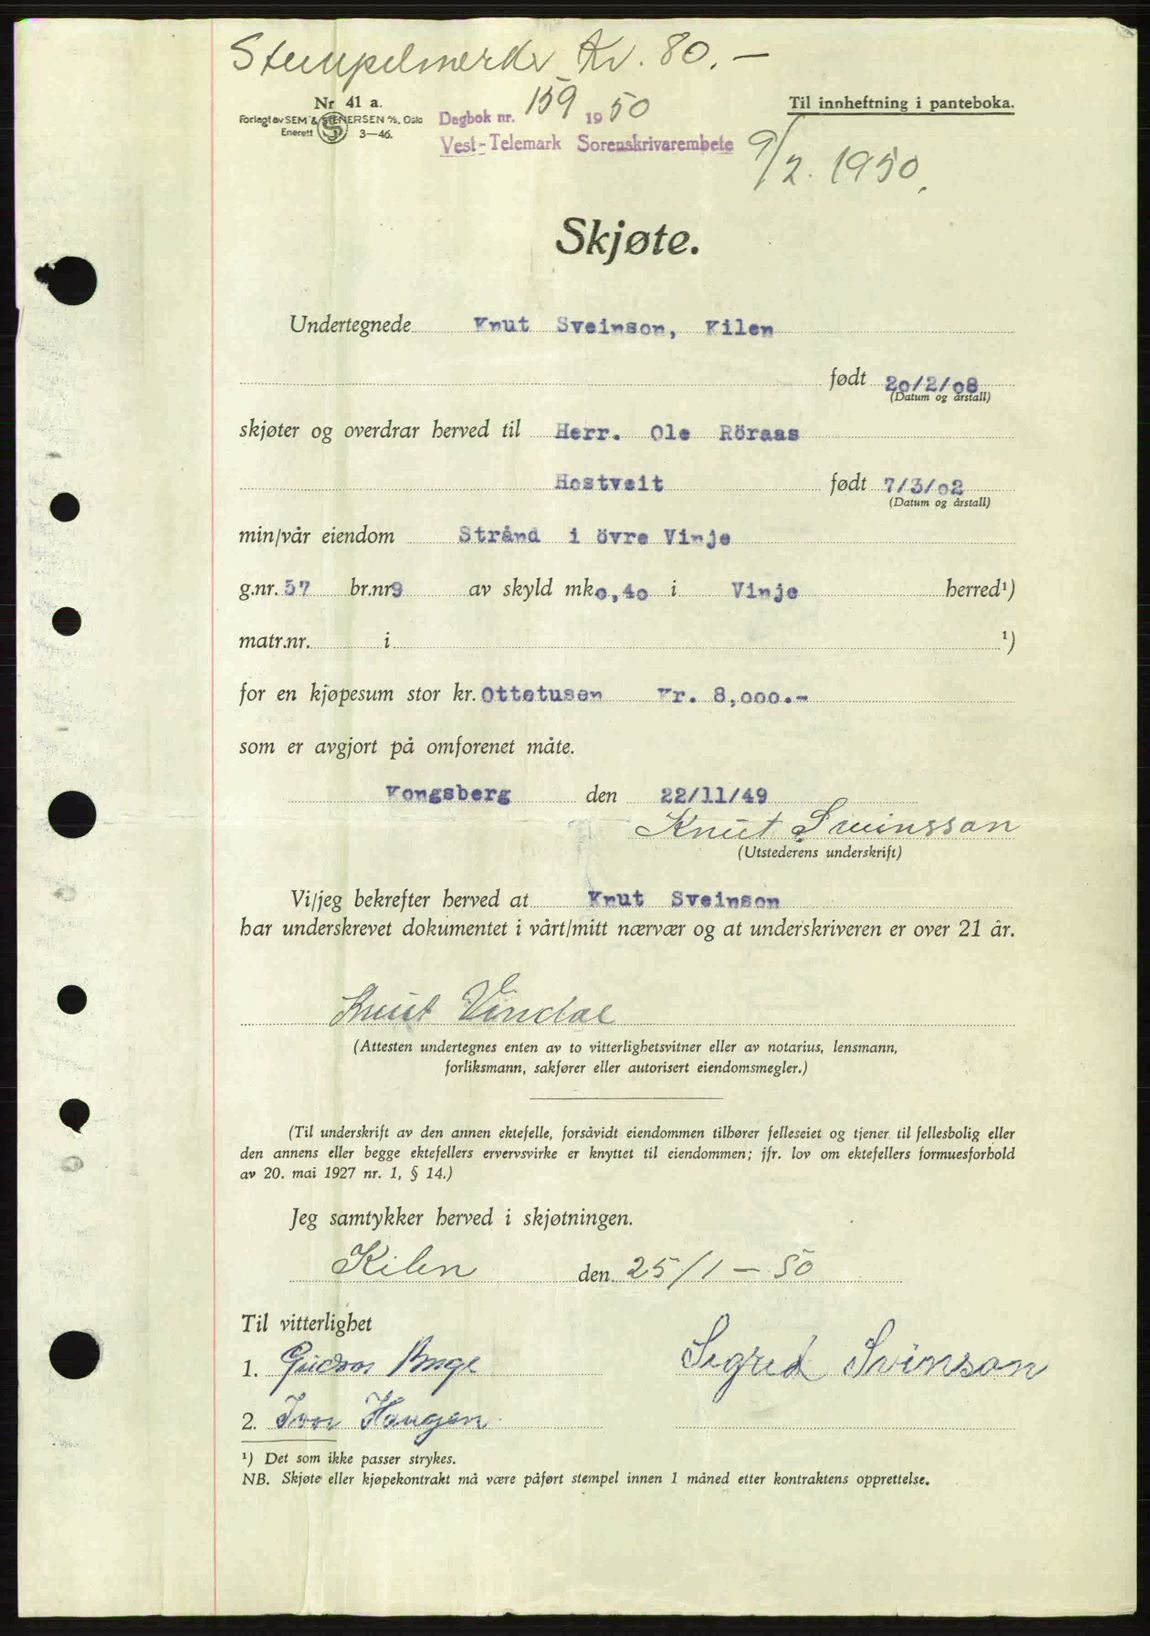 Stempelmerke Kr. 80.-
Nr 41 a.
Forlagt av SEM & STENERSEN A/S, Oslo
Enerett 3-46.
Dagbok nr. 159 1950
Vest-Telemark Sorenskrivarembete
Til innheftning i panteboka.
9/2. 1950.
Skjøte.
Undertegnede Knut Sveinson, Kilen
født 20/2/08
(Datum og årstall)
skjøter og overdrar herved til Herr. Ole Röraas
Hostveit født 7/3/02
(Datum og årstall)
min/vår eiendom Strånd i övre Vinje
g.nr. 57 br.nr 9 av skyld mk 0,40 i Vinje herred¹)
matr.nr. i ¹)
for en kjøpesum stor kr. Ottetusen Kr. 8,000.-
som er avgjort på omforenet måte.
Kongsberg den 22/11/49
Knut Sveinsson
(Utstederens underskrift)
Vi/jeg bekrefter herved at Knut Sveinson
har underskrevet dokumentet i vårt/mitt nærvær og at underskriveren er over 21 år.
Knut Vindal
(Attesten undertegnes enten av to vitterlighetsvitner eller av notarius, lensmann,
forliksmann, sakfører eller autorisert eiendomsmegler.)
(Til underskrift av den annen ektefelle, forsåvidt eiendommen tilhører felleseiet og tjener til fellesbolig eller
den annens eller begge ektefellers ervervsvirke er knyttet til eiendommen; jfr. lov om ektefellers formuesforhold
av 20. mai 1927 nr. 1, § 14.)
Jeg samtykker herved i skjøtningen.
Kilen den 25/1-50
Til vitterlighet
1. Gudron
Sigrid Svinson
2. Ivar Haugen
¹) Det som ikke passer strykes.
NB. Skjøte eller kjøpekontrakt må være påført stempel innen 1 måned etter kontraktens opprettelse.